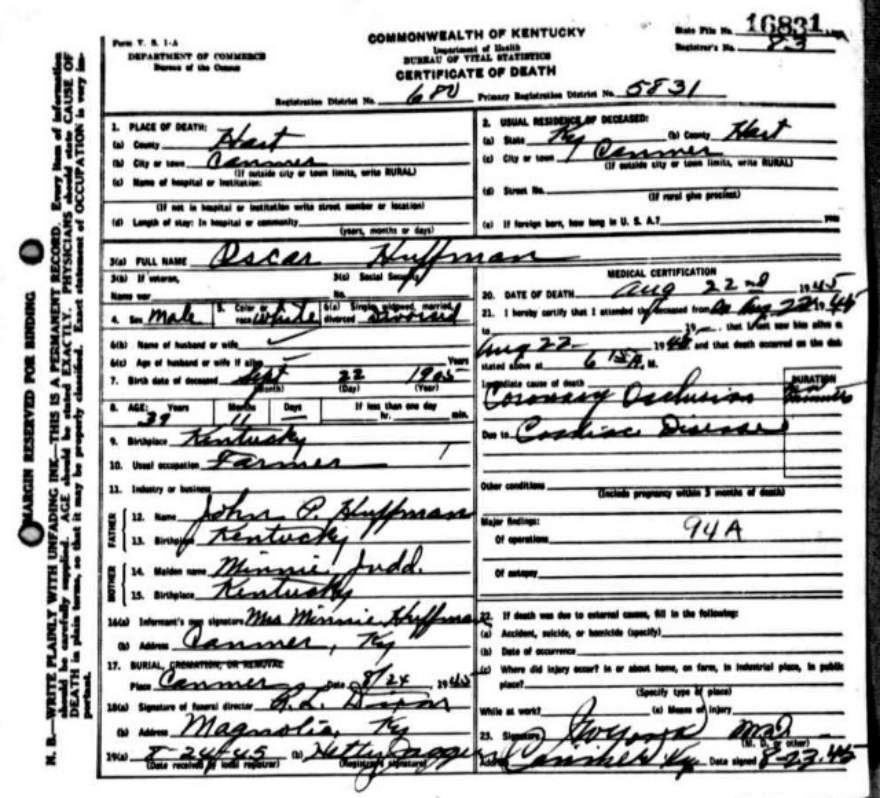 Form V. S. 1-A
DEPARTMENT OF COMMERCE
Bureau of the Census
COMMONWEALTH OF KENTUCKY
Department of Health
BUREAU OF VITAL STATISTICS
CERTIFICATE OF DEATH
State File No. 16831
Registrar's No. 83
Registration District No. 680 Primary Registration District No. 5831
MARGIN RESERVED FOR BINDING
N. B.—WRITE PLAINLY WITH UNFADING INK—THIS IS A PERMANENT RECORD. Every item of information
should be carefully supplied. AGE should be stated EXACTLY. PHYSICIANS should state CAUSE OF
DEATH in plain terms, so that it may be properly classified. Exact statement of OCCUPATION is very im-
portant.
1. PLACE OF DEATH:
(a) County Hart
(b) City or town Canmer
(If outside city or town limits, write RURAL)
(c) Name of hospital or institution:
(If not in hospital or institution write street number or location)
(d) Length of stay: In hospital or community
(years, months or days)
2. USUAL RESIDENCE OF DECEASED:
(a) State Ky (b) County Hart
(c) City or town Canmer
(If outside city or town limits, write RURAL)
(d) Street No.
(If rural give precinct)
(e) If foreign born, how long in U. S. A.? years
3(a) FULL NAME Oscar Huffman
3(b) If veteran,
Name war
3(c) Social Security
No.
4. Sex Male 5. Color or race White 6(a) Single, widowed, married, divorced Divorced
6(b) Name of husband or wife
6(c) Age of husband or wife if alive Years
7. Birth date of deceased Sept 22 1905
(Month) (Day) (Year)
8. AGE: Years Months Days If less than one day
39 11 hr. min.
9. Birthplace Kentucky
10. Usual occupation Farmer
11. Industry or business
FATHER
12. Name John P. Huffman
13. Birthplace Kentucky
MOTHER
14. Maiden name Minnie Judd.
15. Birthplace Kentucky
16(a) Informant's own signature Mrs Minnie Huffman
(b) Address Canmer, Ky
17. BURIAL, CREMATION, OR REMOVAL
Place Canmer Date 8/24 1945
18(a) Signature of funeral director R. L. Dixon
(b) Address Magnolia, Ky
19(a) 8-24-45 (b) Hetty Jaggers
(Date received by local registrar) (Registrar's signature)
MEDICAL CERTIFICATION
20. DATE OF DEATH Aug 22nd 1945
21. I hereby certify that I attended the deceased from Aug 22 1945
to 19 , that I last saw him alive on
Aug 22 1945 and that death occurred on the date
stated above at 6 A. M.
Immediate cause of death
Coronary Occlusion
DURATION
Due to Cardiac Disease
Other conditions
(Include pregnancy within 3 months of death)
Major findings: 94A
Of operations
Of autopsy
22. If death was due to external causes, fill in the following:
(a) Accident, suicide, or homicide (specify)
(b) Date of occurrence
(c) Where did injury occur? In or about home, on farm, in industrial place, in public
place?
(Specify type of place)
While at work? (e) Means of injury
23. Signature MD
(M. D. or other)
Address Ky. Date signed 8-23-45